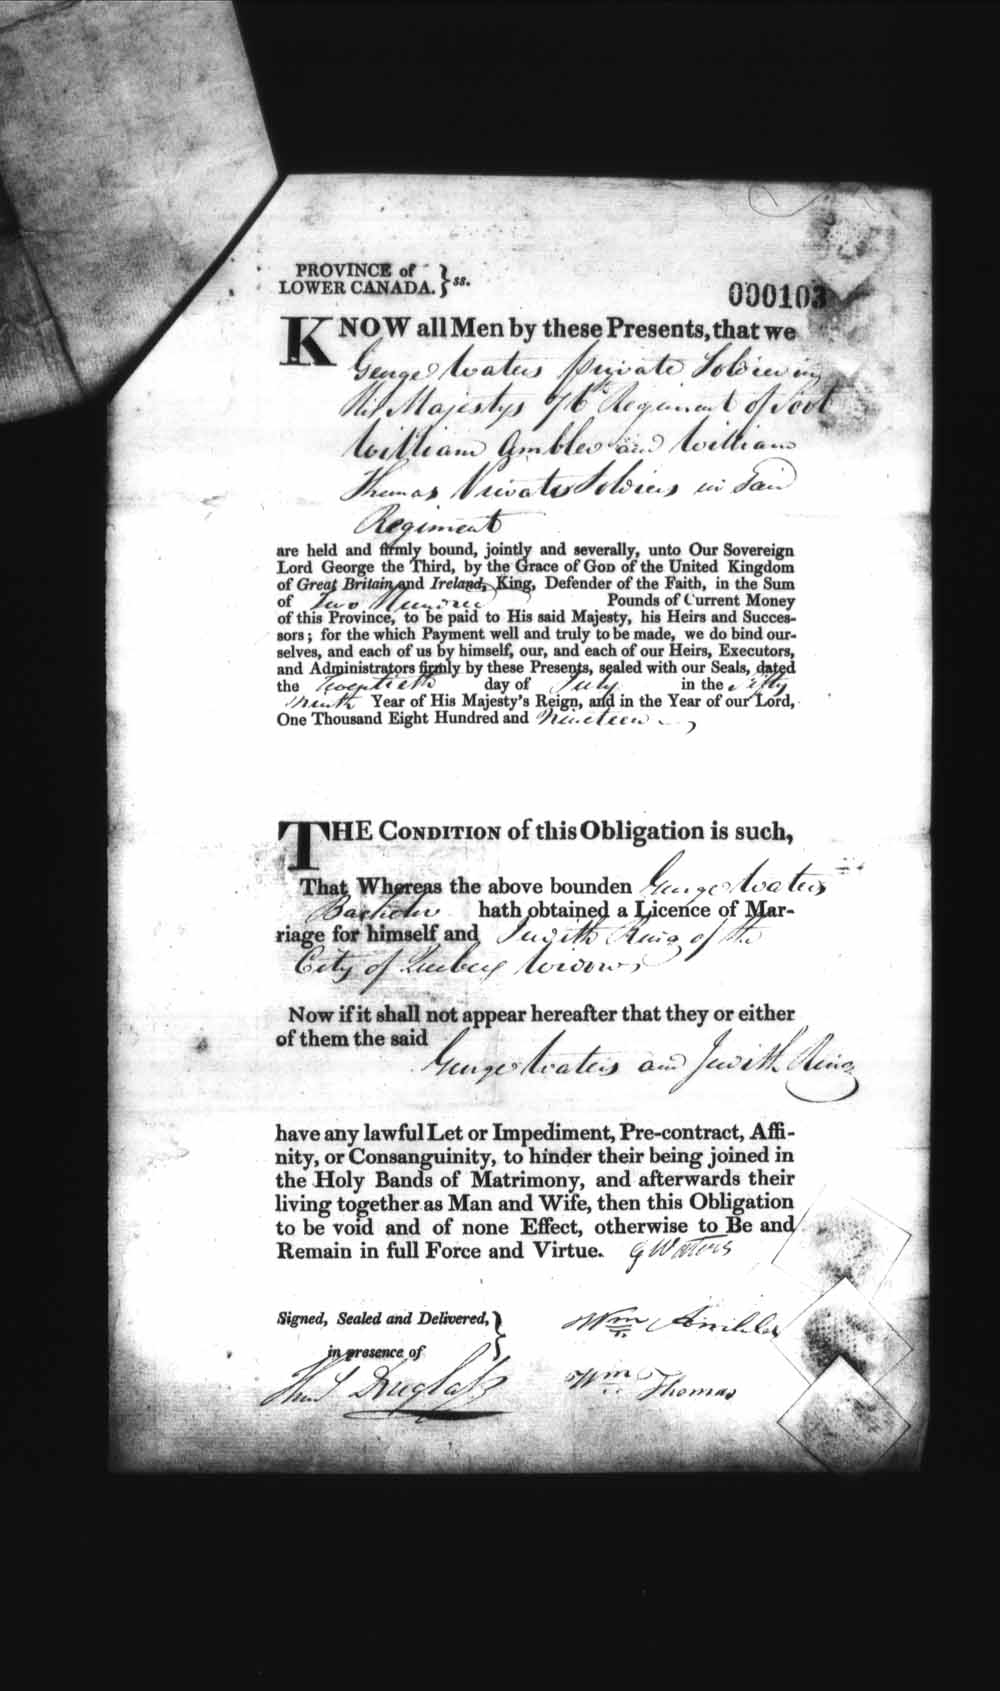 PROVINCE of
LOWER CANADA. } ss.
000103
KNOW all Men by these Presents, that we
George Waters private Soldier in
His Majestys 76th Regiment of Foot
William Ambler and William
Thomas Private Soldiers in said
Regiment
are held and firmly bound, jointly and severally, unto Our Sovereign
Lord George the Third, by the Grace of GOD of the United Kingdom
of Great Britain and Ireland, King, Defender of the Faith, in the Sum
of Two Hundred Pounds of Current Money
of this Province, to be paid to His said Majesty, his Heirs and Succes-
sors; for the which Payment well and truly to be made, we do bind our-
selves, and each of us by himself, our, and each of our Heirs, Executors,
and Administrators firmly by these Presents, sealed with our Seals, dated
the Twentieth day of July in the Fifty
Ninth Year of His Majesty's Reign, and in the Year of our Lord,
One Thousand Eight Hundred and Nineteen
THE CONDITION of this Obligation is such,
That Whereas the above bounden George Waters
Bachelor hath obtained a Licence of Mar-
riage for himself and Judith Ring of the
City of Quebec Widow
Now if it shall not appear hereafter that they or either
of them the said
George Waters and Judith Ring
have any lawful Let or Impediment, Pre-contract, Affi-
nity, or Consanguinity, to hinder their being joined in
the Holy Bands of Matrimony, and afterwards their
living together as Man and Wife, then this Obligation
to be void and of none Effect, otherwise to Be and
Remain in full Force and Virtue. G Waters
Signed, Sealed and Delivered, } Wm Ambler
in presence of
Douglass Wm Thomas